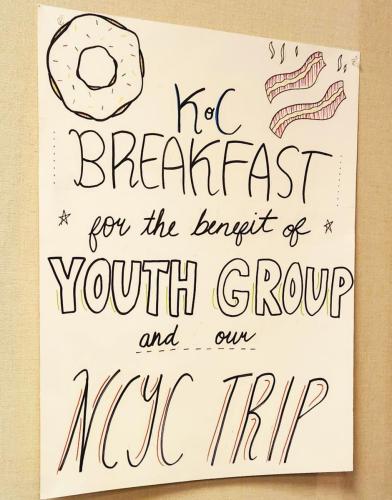 KoC
BREAKFAST
for the benefit of
YOUTH GROUP
and our
NCYC TRIP